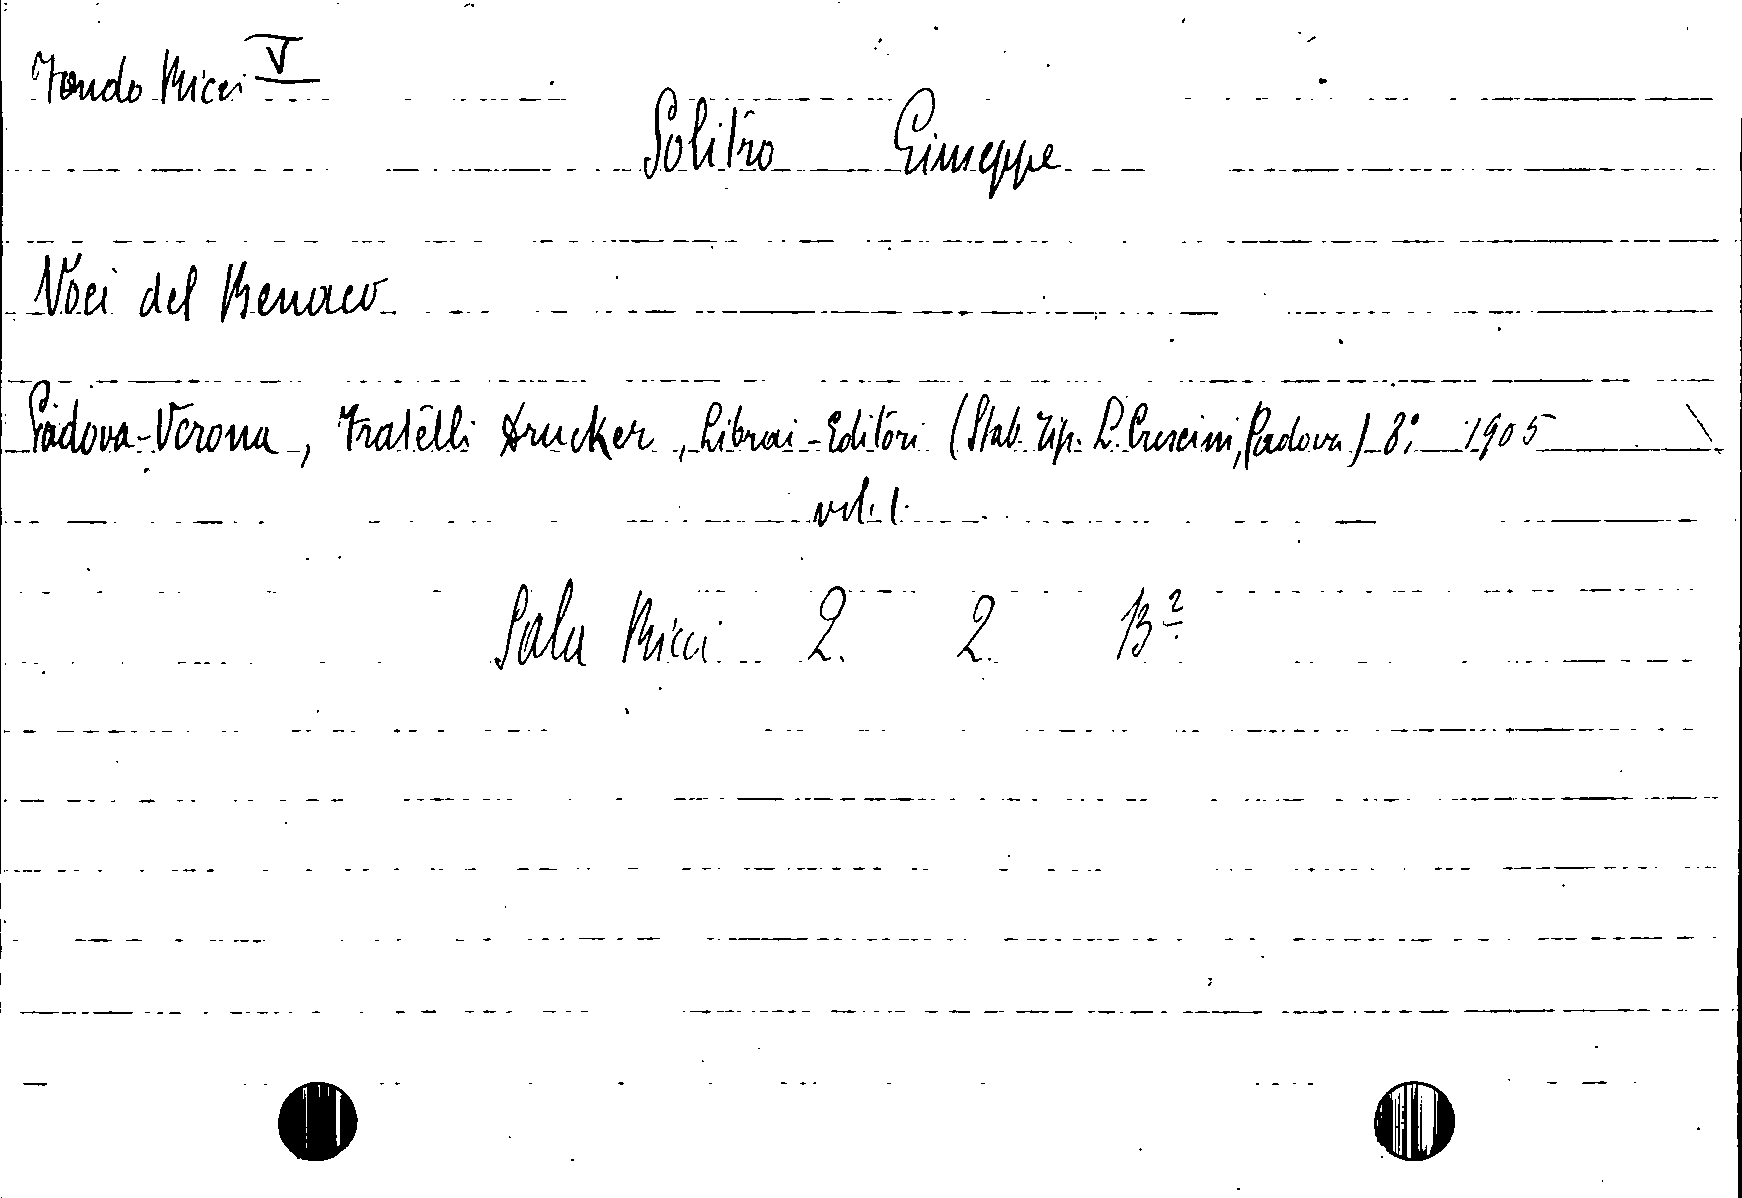 Fondo Ricci V
Solitro Giuseppe
Voci del Benaco
Padova-Verona, Fratelli Drucker, Librai-Editori (Stab. Tip. L. Crescini, Padova) 8° 1905
vol. 1.
Sala Ricci 2. 2. B²